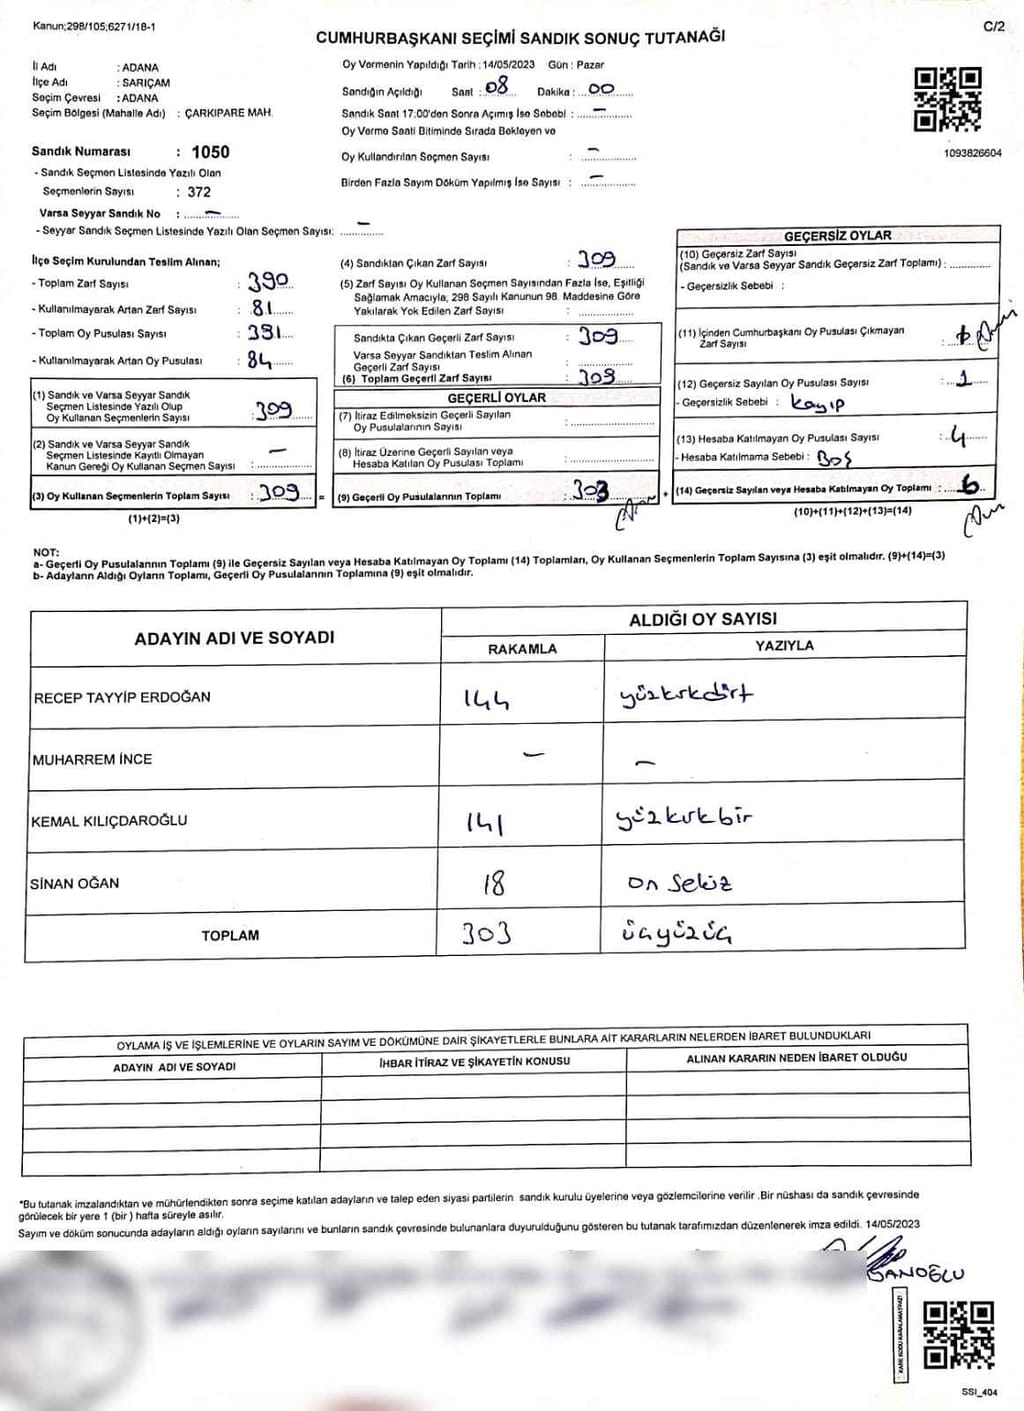 Kanun;298/105;6271/18-1
C/2
CUMHURBAŞKANI SEÇİMİ SANDIK SONUÇ TUTANAĞI
İl Adı : ADANA
İlçe Adı : SARIÇAM
Seçim Çevresi : ADANA
Seçim Bölgesi (Mahalle Adı) : ÇARKIPARE MAH.
Sandık Numarası : 1050
- Sandık Seçmen Listesinde Yazılı Olan
Seçmenlerin Sayısı : 372
Varsa Seyyar Sandık No : –
- Seyyar Sandık Seçmen Listesinde Yazılı Olan Seçmen Sayısı: –
Oy Vermenin Yapıldığı Tarih : 14/05/2023 Gün : Pazar
Sandığın Açıldığı Saat : 08 Dakika : 00
Sandık Saat 17:00'den Sonra Açımış İse Sebebi : –
Oy Verme Saati Bitiminde Sırada Bekleyen ve
Oy Kullandırılan Seçmen Sayısı : –
Birden Fazla Sayım Döküm Yapılmış İse Sayısı : –
1093826604
İlçe Seçim Kurulundan Teslim Alınan;
- Toplam Zarf Sayısı : 390
- Kullanılmayarak Artan Zarf Sayısı : 81
- Toplam Oy Pusulası Sayısı : 391
- Kullanılmayarak Artan Oy Pusulası : 84
(1) Sandık ve Varsa Seyyar Sandık
Seçmen Listesinde Yazılı Olup
Oy Kullanan Seçmenlerin Sayısı : 309
(2) Sandık ve Varsa Seyyar Sandık
Seçmen Listesinde Kayıtlı Olmayan
Kanun Gereği Oy Kullanan Seçmen Sayısı : –
(3) Oy Kullanan Seçmenlerin Toplam Sayısı : 309 =
(1)+(2)=(3)
(4) Sandıktan Çıkan Zarf Sayısı : 309
(5) Zarf Sayısı Oy Kullanan Seçmen Sayısından Fazla İse, Eşitliği
Sağlamak Amacıyla, 298 Sayılı Kanunun 98. Maddesine Göre
Yakılarak Yok Edilen Zarf Sayısı :
Sandıkta Çıkan Geçerli Zarf Sayısı : 309
Varsa Seyyar Sandıktan Teslim Alınan
Geçerli Zarf Sayısı :
(6) Toplam Geçerli Zarf Sayısı : 309
GEÇERLİ OYLAR
(7) İtiraz Edilmeksizin Geçerli Sayılan
Oy Pusulalarının Sayısı :
(8) İtiraz Üzerine Geçerli Sayılan veya
Hesaba Katılan Oy Pusulası Toplamı :
(9) Geçerli Oy Pusulalarının Toplamı : 303 +
GEÇERSİZ OYLAR
(10) Geçersiz Zarf Sayısı
(Sandık ve Varsa Seyyar Sandık Geçersiz Zarf Toplamı) :
- Geçersizlik Sebebi :
(11) İçinden Cumhurbaşkanı Oy Pusulası Çıkmayan
Zarf Sayısı :
(12) Geçersiz Sayılan Oy Pusulası Sayısı : 1
- Geçersizlik Sebebi : kayıp
(13) Hesaba Katılmayan Oy Pusulası Sayısı : 4
- Hesaba Katılmama Sebebi : Boş
(14) Geçersiz Sayılan veya Hesaba Katılmayan Oy Toplamı : 6
(10)+(11)+(12)+(13)=(14)
NOT:
a- Geçerli Oy Pusulalarının Toplamı (9) ile Geçersiz Sayılan veya Hesaba Katılmayan Oy Toplamı (14) Toplamları, Oy Kullanan Seçmenlerin Toplam Sayısına (3) eşit olmalıdır. (9)+(14)=(3)
b- Adayların Aldığı Oyların Toplamı, Geçerli Oy Pusulalarının Toplamına (9) eşit olmalıdır.
ADAYIN ADI VE SOYADI
ALDIĞI OY SAYISI
RAKAMLA YAZIYLA
RECEP TAYYİP ERDOĞAN 144 yüzkırkdört
MUHARREM İNCE – –
KEMAL KILIÇDAROĞLU 141 yüzkırkbir
SİNAN OĞAN 18 on sekiz
TOPLAM 303 üçyüzüç
OYLAMA İŞ VE İŞLEMLERİNE VE OYLARIN SAYIM VE DÖKÜMÜNE DAİR ŞİKAYETLERLE BUNLARA AİT KARARLARIN NELERDEN İBARET BULUNDUKLARI
ADAYIN ADI VE SOYADI İHBAR İTİRAZ VE ŞİKAYETİN KONUSU ALINAN KARARIN NEDEN İBARET OLDUĞU
*Bu tutanak imzalandıktan ve mühürlendikten sonra seçime katılan adayların ve talep eden siyasi partilerin sandık kurulu üyelerine veya gözlemcilerine verilir .Bir nüshası da sandık çevresinde
görülecek bir yere 1 (bir ) hafta süreyle asılır.
Sayım ve döküm sonucunda adayların aldığı oyların sayılarını ve bunların sandık çevresinde bulunanlara duyurulduğunu gösteren bu tutanak tarafımızdan düzenlenerek imza edildi. 14/05/2023
KARE KODU KARALAMAYINIZ!
SSI_404